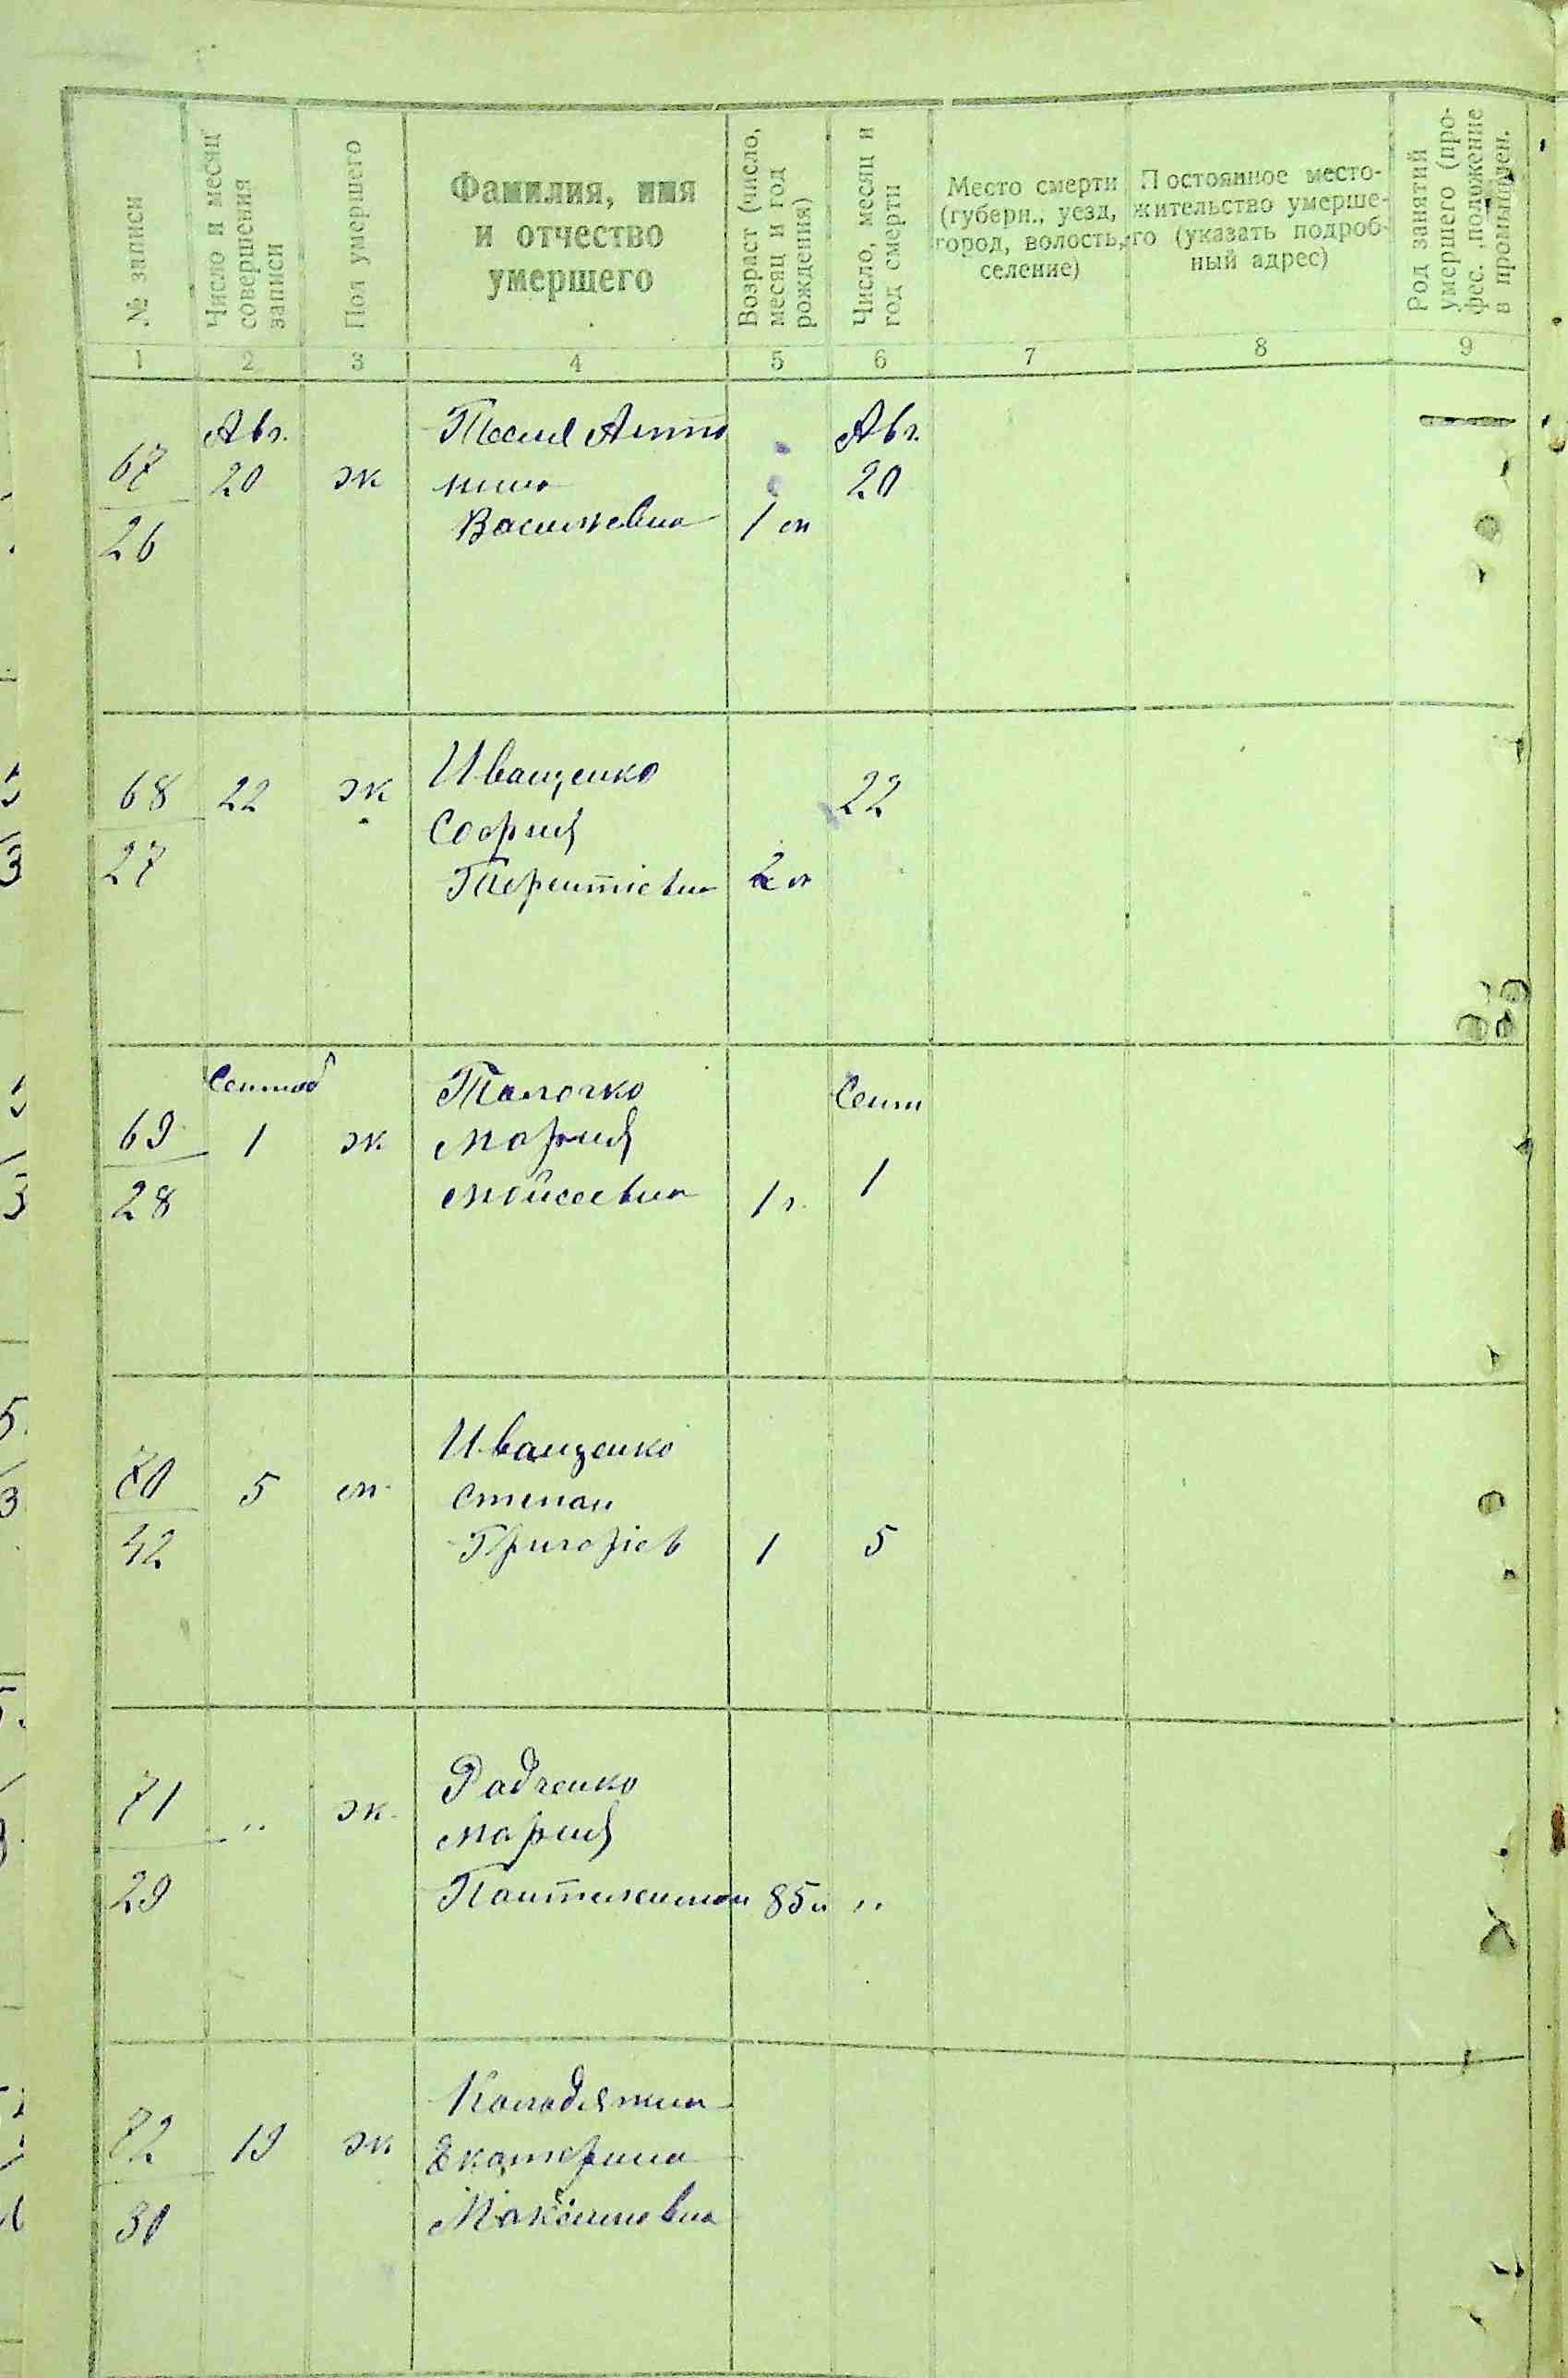 № записи
Число и месяц
совершения
записи
Пол умершего
Фамилия, имя
и отчество
умершего
Возраст (число,
месяц и год
рождения)
Число, месяц и
год смерти
Место смерти
(губерн., уезд,
город, волость,
селение)
Постоянное место-
жительство умерше-
го (указать подроб-
ный адрес)
Род занятий
умершего (про-
фес. положение
в промышлен.
1 2 3 4 5 6 7 8 9
Авг. Авг.
67 20 ж Анто 20
нина
26 Васильевна 1 м
68 22 ж Иващенко 22
София
27 Терентіевна 2 м
Сентяб Сент
69 1 ж
Мария
28 Мойсеевна 1 г. 1
70 5 м Иващенко
Степан
42 Григоріев 1 5
71 " ж Радченко
Мария
29 85 "
72 19 ж Колодяжна
Екатерина
30 Максимовна